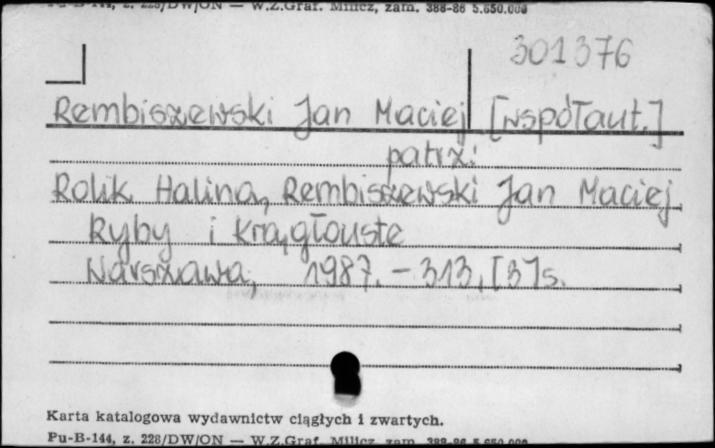 Pu-B-144, z. 228/DW/ON — W.Z.Graf. Milicz, zam. 388-86 5.650.000
301376
Rembiszewski Jan Maciej [współaut.]
patrz:
Rolik Halina, Rembiszewski Jan Maciej
Ryby i Krągłouste
Warszawa, 1987. - 313, [3] s.
Karta katalogowa wydawnictw ciągłych i zwartych.
Pu-B-144, z. 228/DW/ON — W.Z.Graf. Milicz, zam. 388-86 5.650.000